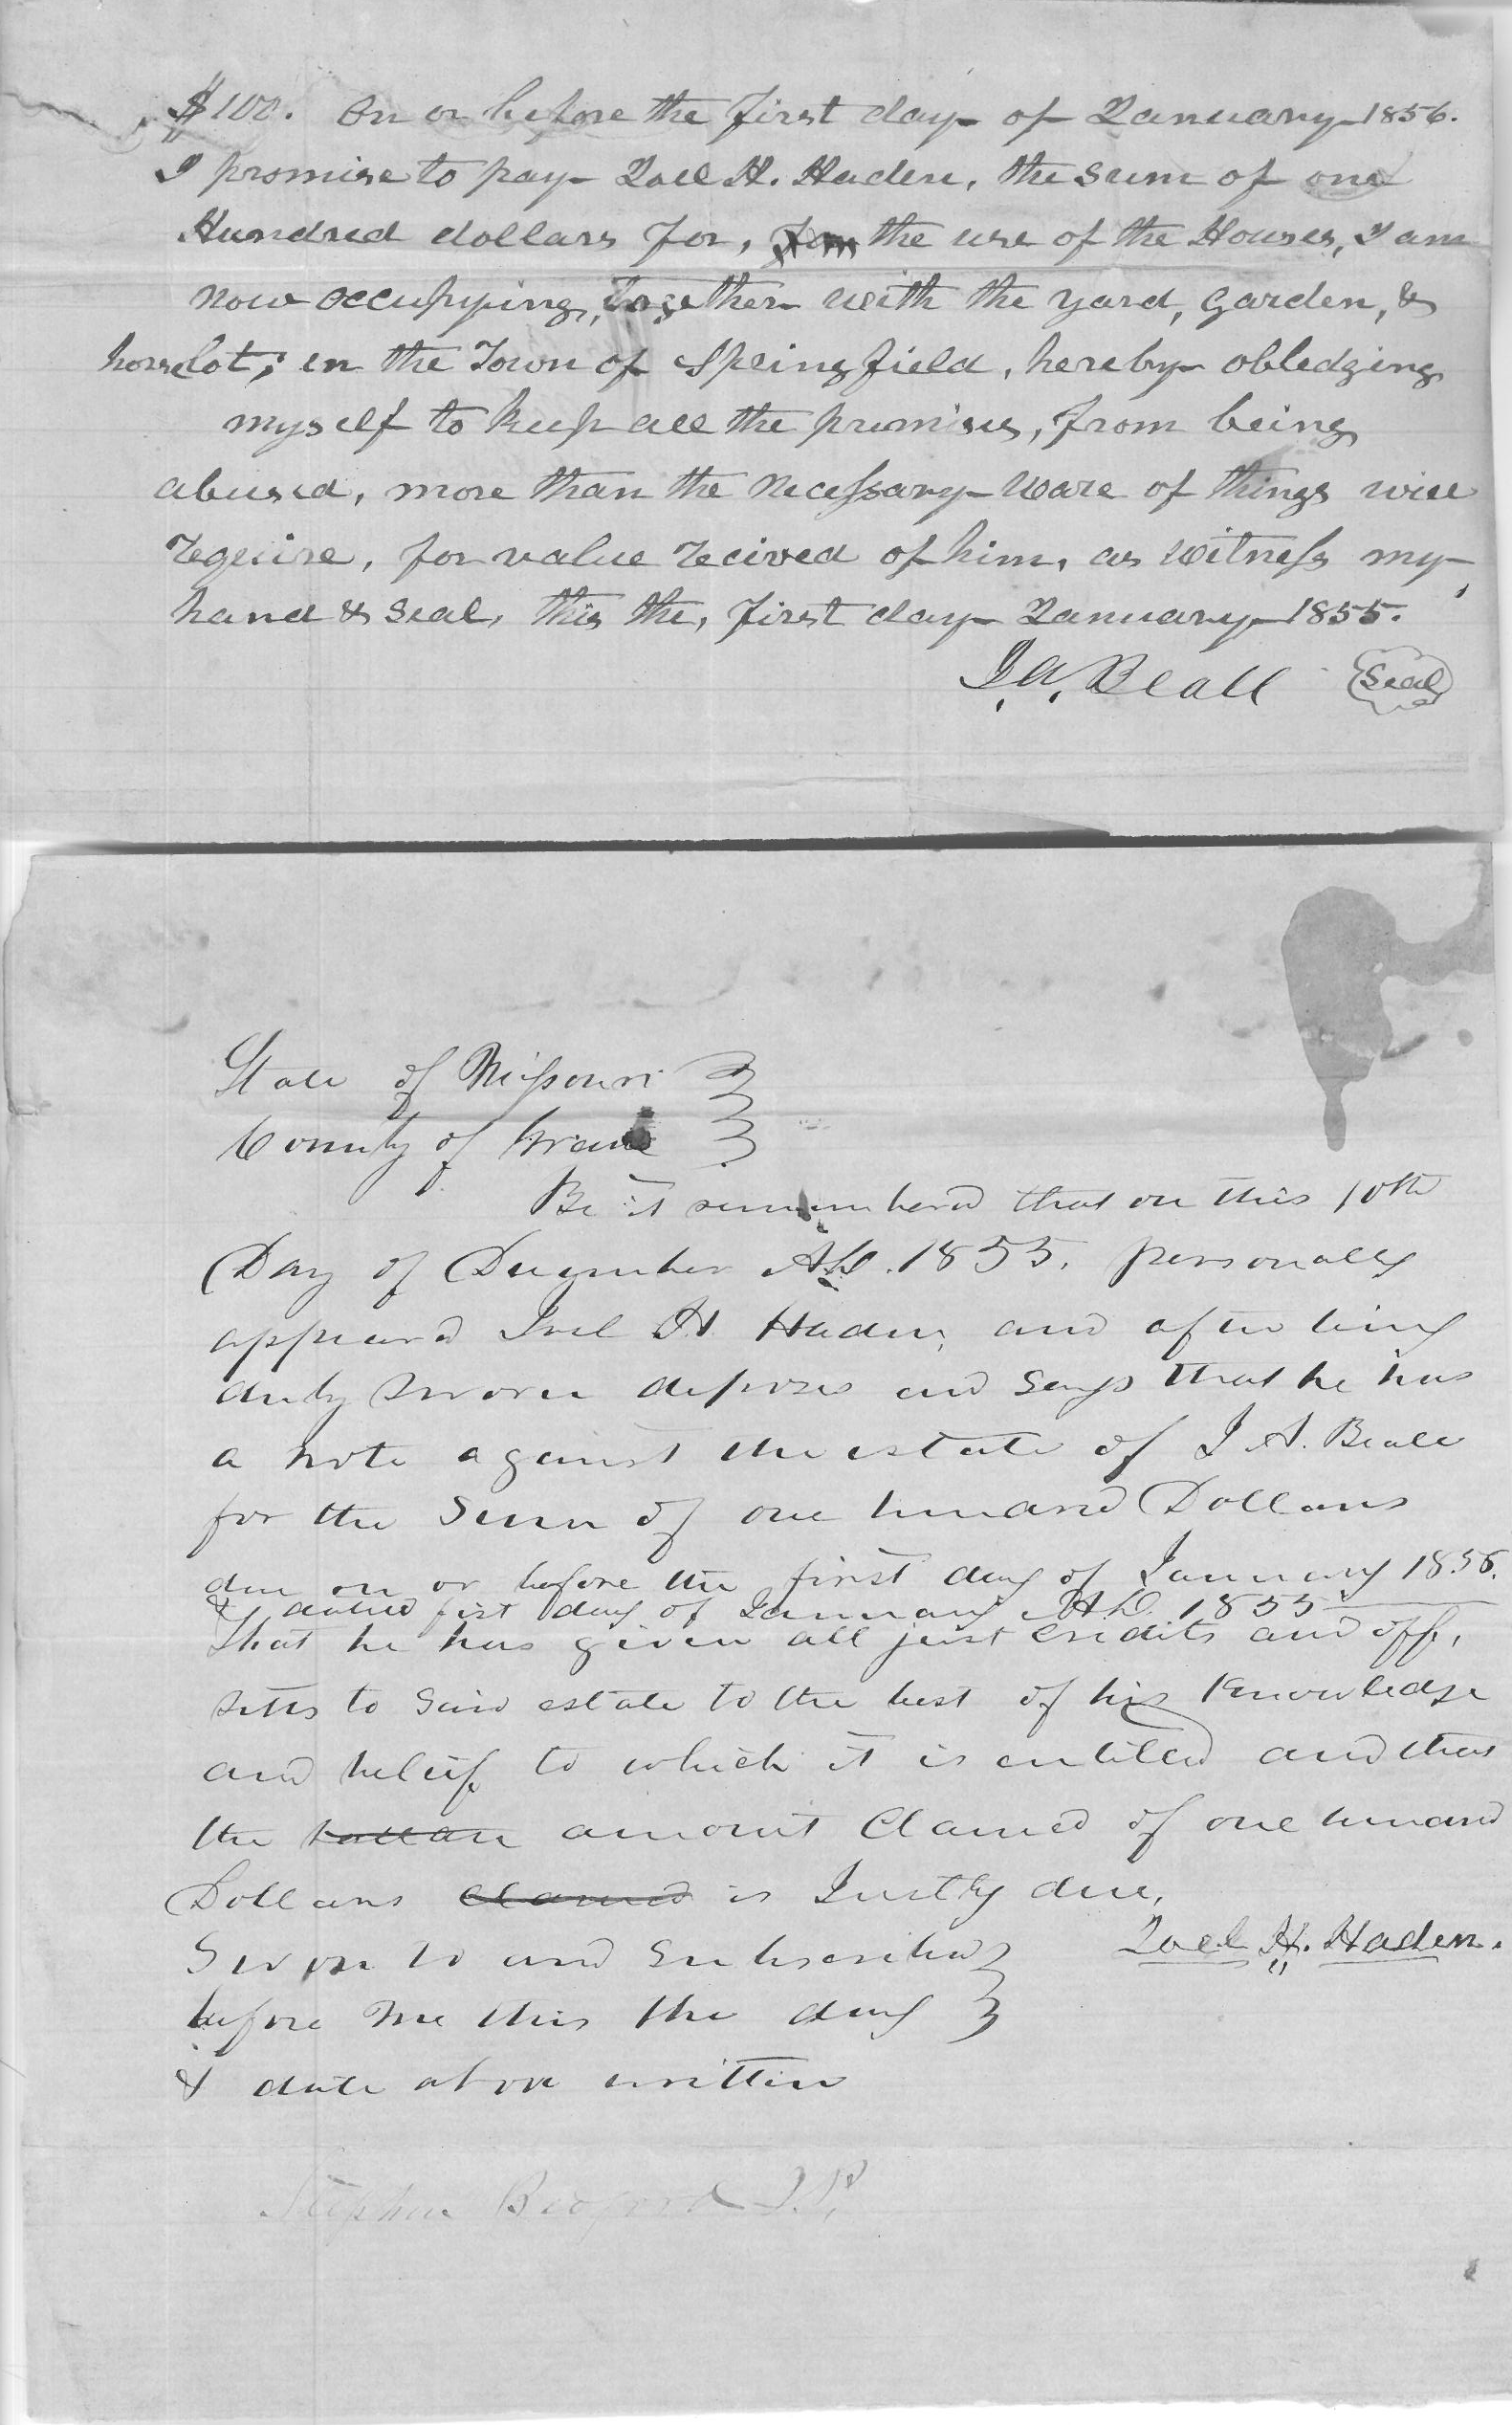 $100. On or before the first day of January 1856.
I promise to pay Joel H. Haden, the sum of one
Hundred dollars for, the use of the Houses, I am
now occupying, together with the yard, garden, &
horselot, in the Town of Springfield, hereby obledging
myself to keep all the premises, from being
abused, more than the necessary ware of things will
require, for value recived of him, as witness my
hand & seal, this the, first day January 1855.
J. A. Beall Seal
State of Missouri
County of Greene
Be it remembered that on this 10th
Day of December A.D. 1855. personally
appeard Joel H. Haden, and after being
duly sworn deposes and says that he has
a note against the estate of J. A. Beall
for the sum of one hundred Dollars
due on or before the first day of January 1856.
& dated first day of January A.D. 1855
That he has given all just credits and off,
setts to said estate to the best of his Knowledge
and belief to which it is entitled and that
the amount Clamed of one hundred
Dollars Clamed is Justly due,
Joel H. Haden.
Sworn to and Subscribed
before me this the day
& date above written
Stephen Bedford J.P.